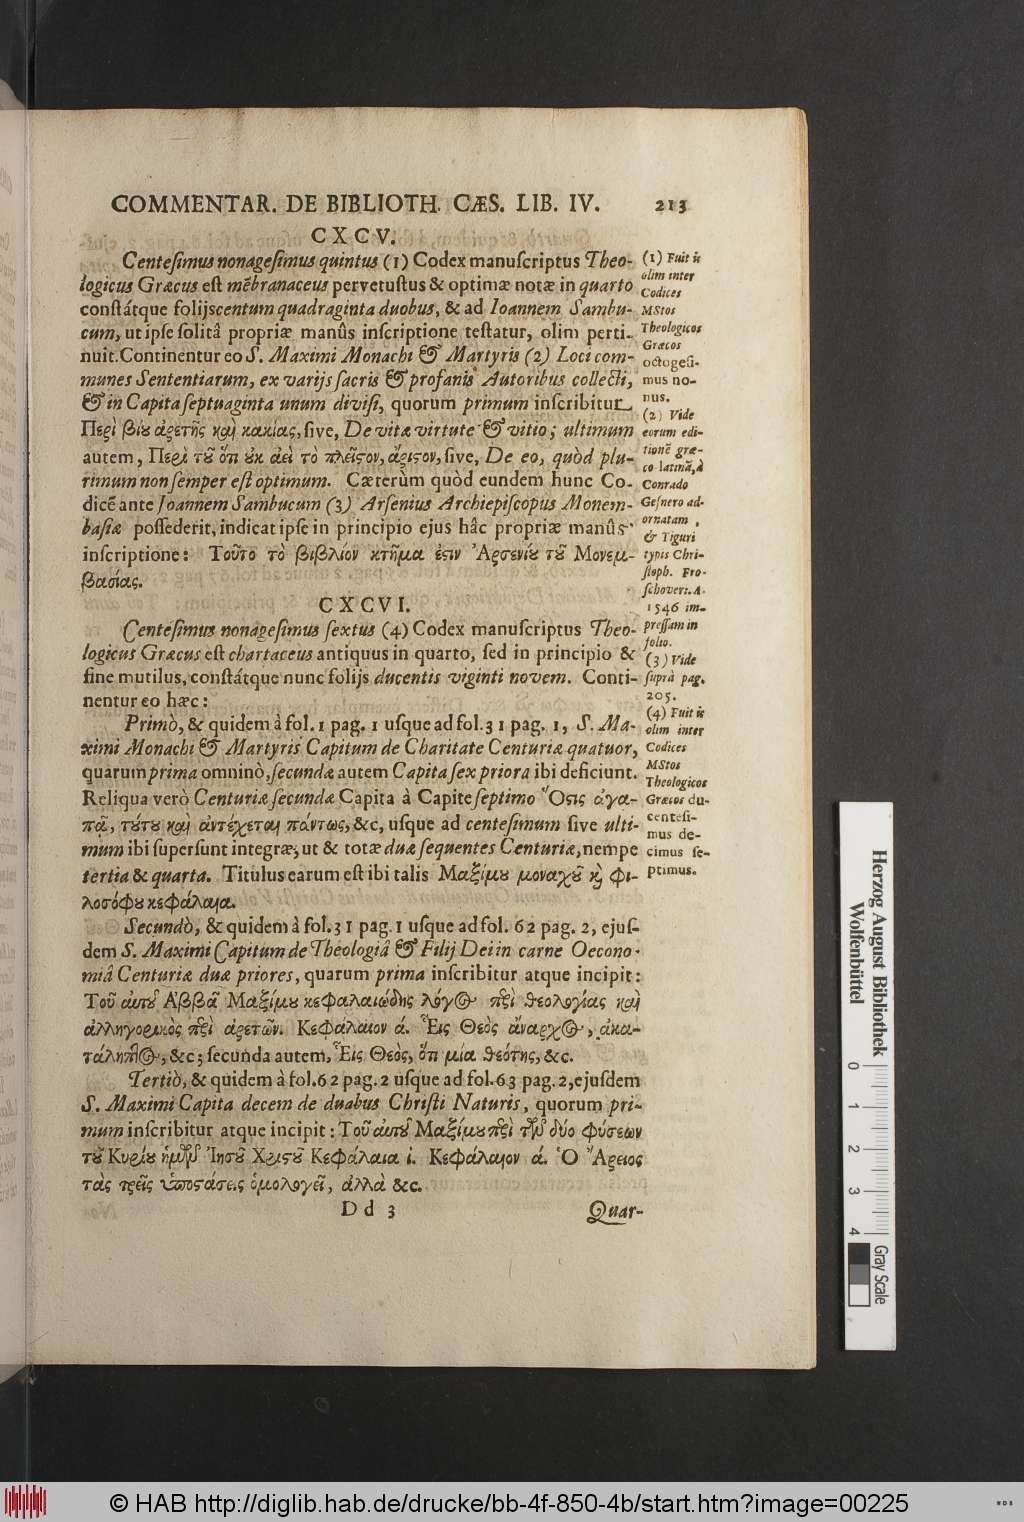 COMMENTAR. DE BIBLIOTH. CÆS. LIB. IV. 213
CXCV.
Centeſimus nonageſimus quintus (1) Codex manuſcriptus Theo-
logicus Græcus eſt mẽbranaceus pervetuſtus & optimæ notæ in quarto
conſtátque folijs centum quadraginta duobus, & ad Ioannem Sambu-
cum, ut ipſe ſolitâ propriæ manûs inſcriptione teſtatur, olim perti-
nuit. Continentur eo S. Maximi Monachi & Martyris (2) Loci com-
munes Sententiarum, ex varijs ſacris & profanis Autoribus collecti,
& in Capita ſeptuaginta unum diviſi, quorum primum inſcribitur
Περὶ βίȣ ἀρετῆς καὶ κακίας, ſive, De vita virtute & vitio; ultimum
autem, Περὶ τȣ͂ ὅτι ȣκ ἀεὶ τὸ πλεῖϛον, ἄριϛον, ſive, De eo, quòd plu-
rimum non ſemper eſt optimum. Cæterùm quòd eundem hunc Co-
dicẽ ante Joannem Sambucum (3) Arſenius Archiepiſcopus Monem-
baſiæ poſſederit, indicat ipſe in principio ejus hâc propriæ manûs
inſcriptione: Τοῦτο τὸ βιβλίον κτῆμα ἐϛιν Ἀρσενίȣ τȣ͂ Μονεμ-
βασίας.
CXCVI.
Centeſimus nonageſimus ſextus (4) Codex manuſcriptus Theo-
logicus Græcus eſt chartaceus antiquus in quarto, ſed in principio &
fine mutilus, conſtátque nunc folijs ducentis viginti novem. Conti-
nentur eo hæc:
Primò, & quidem à fol. 1 pag. 1 uſque ad fol. 31 pag. 1, S. Ma-
ximi Monachi & Martyris Capitum de Charitate Centuriæ quatuor,
quarum prima omninò, ſecundæ autem Capita ſex priora ibi deficiunt.
Reliqua verò Centuriæ ſecundæ Capita à Capite ſeptimo Ὅϛις ἀγα-
πᾷ, τȣ́τȣ καὶ ἀντέχεται πάντως, &c, uſque ad centeſimum ſive ulti-
mum ibi ſuperſunt integræ, ut & totæ duæ ſequentes Centuriæ, nempe
tertia & quarta. Titulus earum eſt ibi talis Μαξίμȣ μοναχȣ͂ κỳ φι-
λοσόφȣ κεφάλαια.
Secundò, & quidem à fol. 31 pag. 1 uſque ad fol. 62 pag. 2, ejuſ-
dem S. Maximi Capitum de Theologiâ & Filij Dei in carne Oecono-
miâ Centuriæ duæ priores, quarum prima inſcribitur atque incipit:
Τοῦ αὐτȣ͂ Ἀββᾶ Μαξίμȣ κεφαλαιώδης λόγος περὶ θεολογίας καὶ
ἀλληγορικὸς περὶ ἀρετῶν. Κεφάλαιον ά. Ἕις Θεὸς ἄναρχος, ἀκα-
τάληπτος, &c; ſecunda autem, Ἕις Θεὸς, ὅτι μία θεότης, &c.
Tertiò, & quidem à fol. 62 pag. 2 uſque ad fol. 63 pag. 2, ejuſdem
S. Maximi Capita decem de duabus Chriſti Naturis, quorum pri-
mum inſcribitur atque incipit: Τοῦ αὐτȣ͂ Μαξίμȣ περὶ τῶν δύο φύσεων
τȣ͂ Κυρίȣ ἡμῶν Ἰησȣ͂ Χριϛȣ͂ Κεφάλαια ί. Κεφάλαιον ά. Ὁ Ἄρειος
τὰς τρεῖς ὑποϛάσεις ὁμολογεῖ, ἀλλὰ &c.
Dd 3 Quar-
(1) Fuit is
olim inter
Codices
MStos
Theologicos
Græcos
octogeſi-
mus no-
nus.
(2) Vide
eorum edi-
tionẽ græ-
co latinã, à
Conrado
Geſnero ad-
ornatam,
& Tiguri
typis Chri-
ſtoph. Fro-
ſchoveri. A.
1546 im-
preſſam in
folio.
(3) Vide
ſuprà pag.
205.
(4) Fuit is
olim inter
Codices
MStos
Theologicos
Græcos du-
centeſi-
mus de-
cimus ſe-
ptimus.
Herzog August Bibliothek
Wolfenbüttel
0 1 2 3 4
Gray Scale
© HAB http://diglib.hab.de/drucke/bb-4f-850-4b/start.htm?image=00225